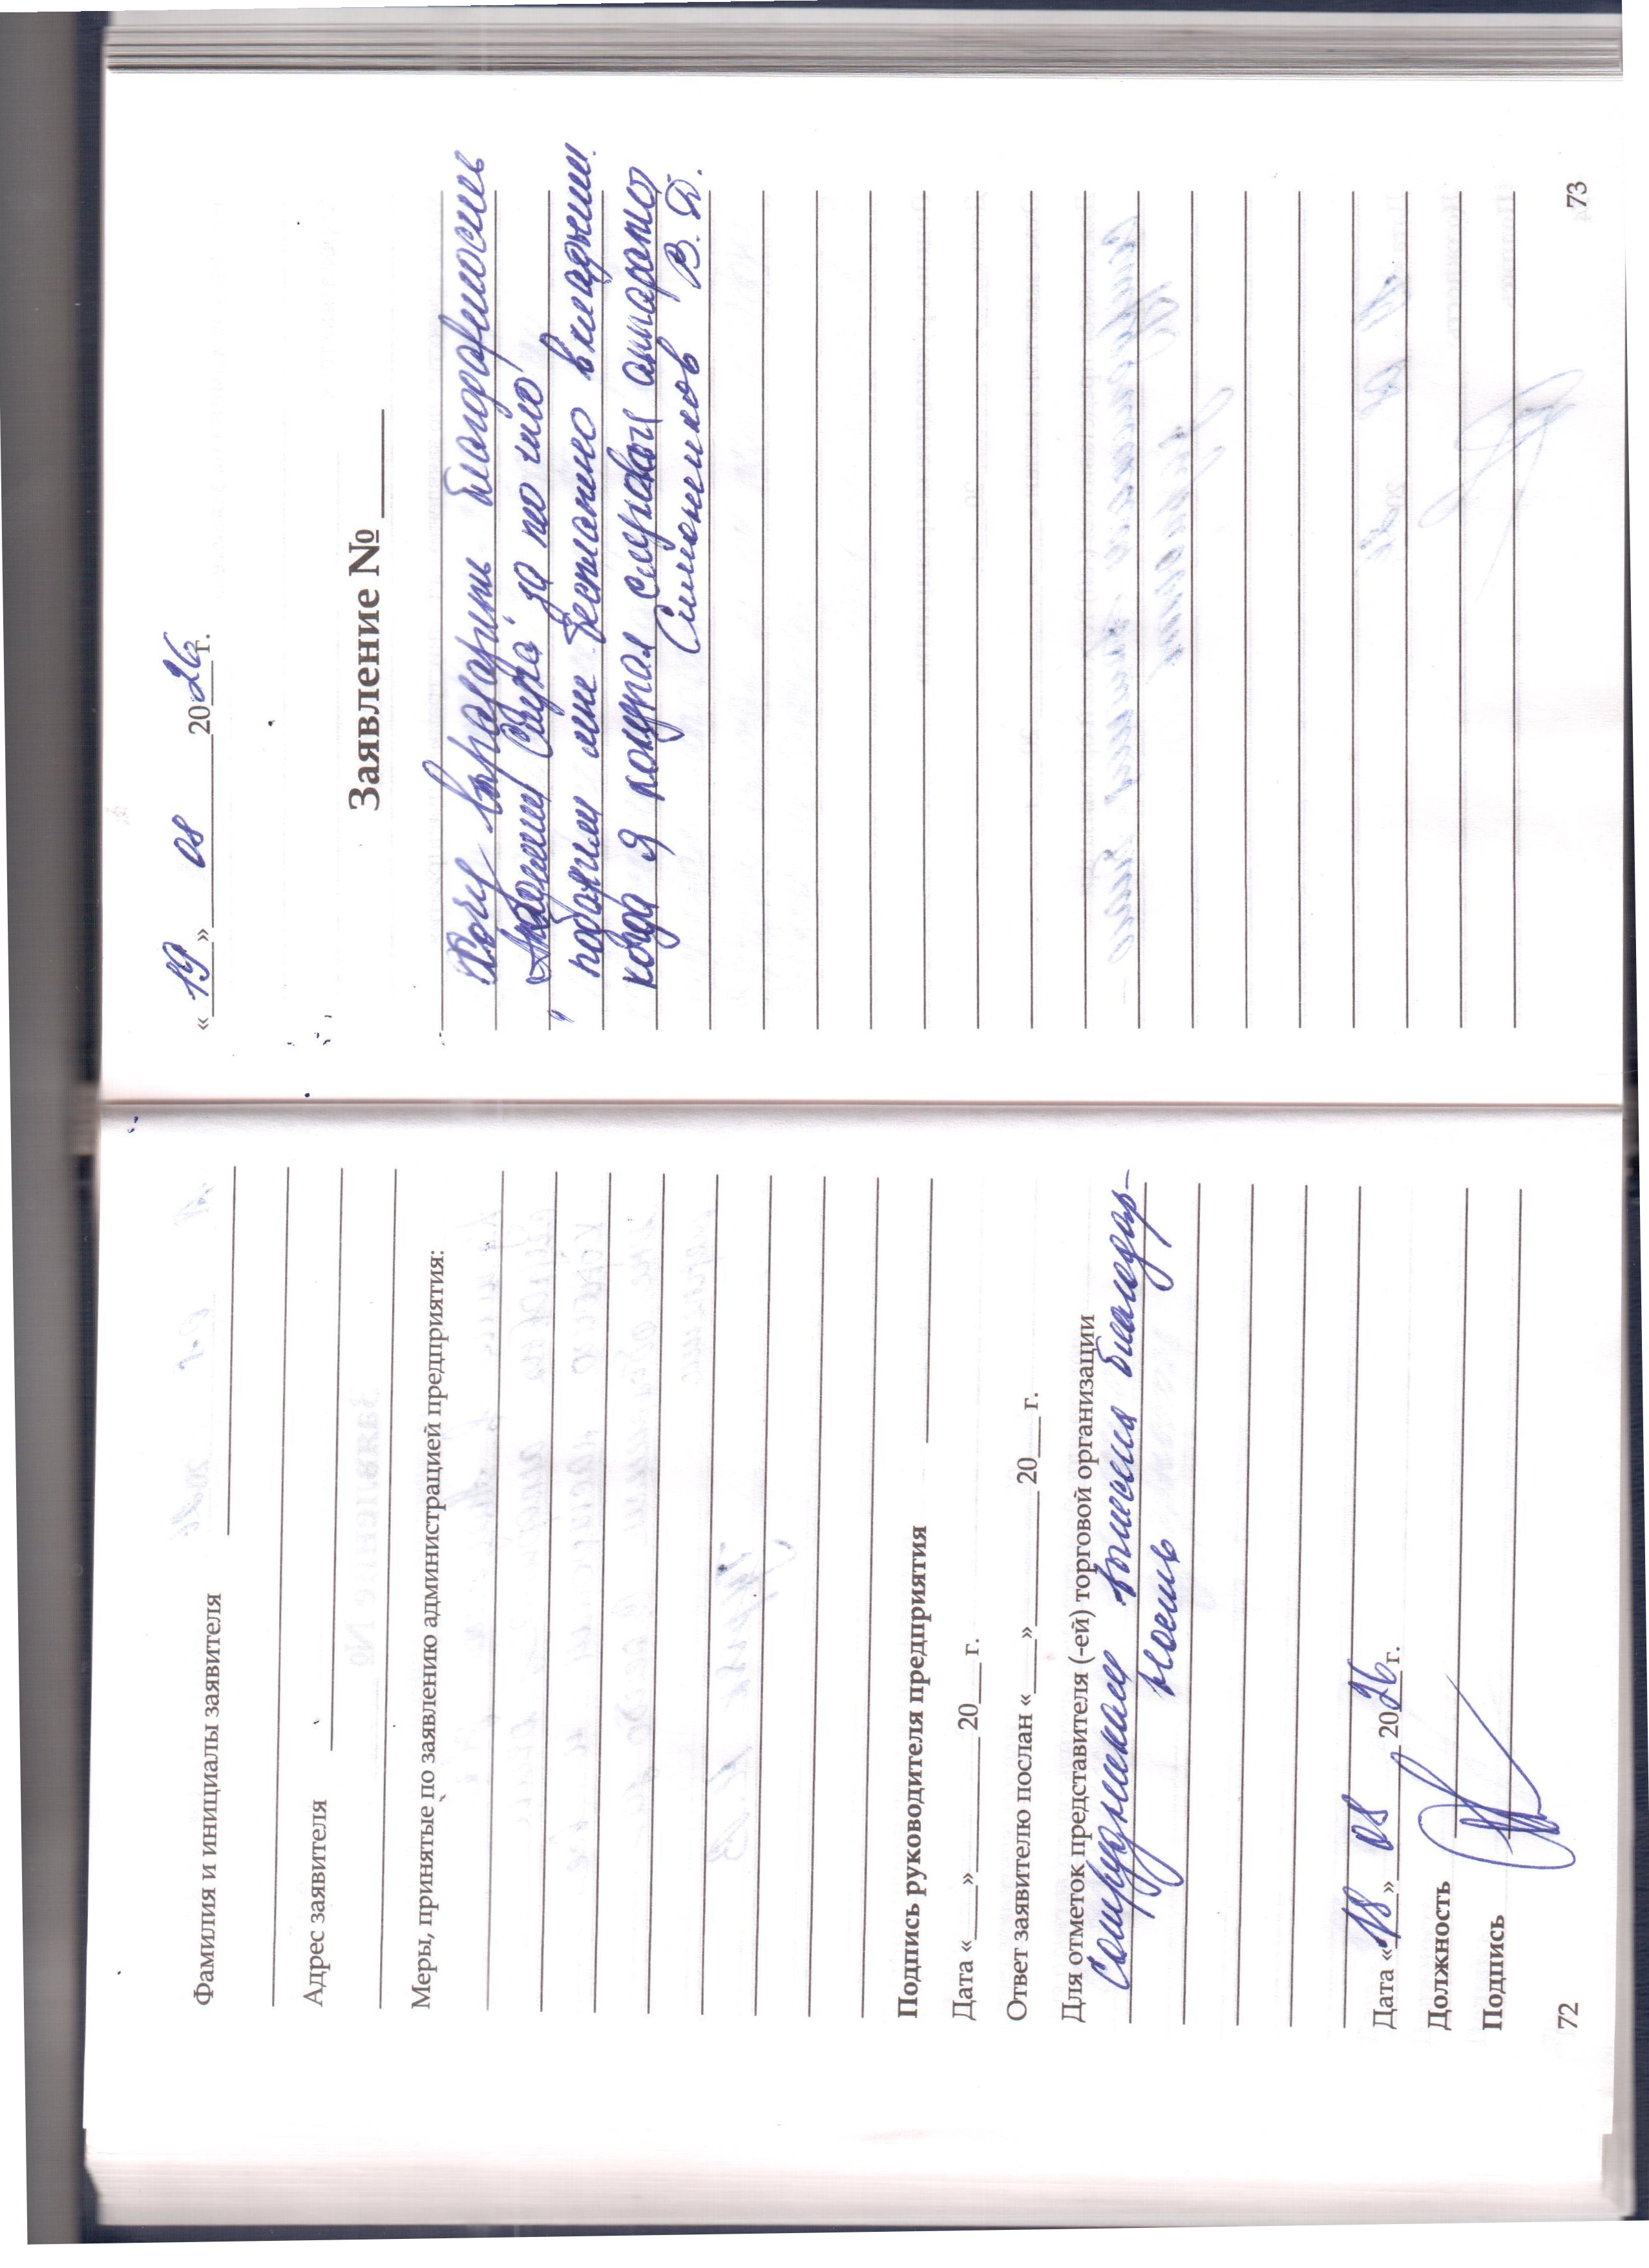 Фамилия и инициалы заявителя
Адрес заявителя
Меры, принятые по заявлению администрацией предприятия:
Подпись руководителя предприятия
Дата «___»________20___г.
Ответ заявителю послан «___»________20___г.
Для отметок представителя (-ей) торговой организации
Сотрудникам вынесена благодар-
ность
Дата «18» 08 2026 г.
Должность
Подпись
72
«19» 08 2026 г.
Заявление № ____
Хочу выразить благодарность
"Академии Слуха" за то что
подарили мне бесплатно вкладыши.
когда я покупал слуховой аппарат
Симоненков В. Д.
73